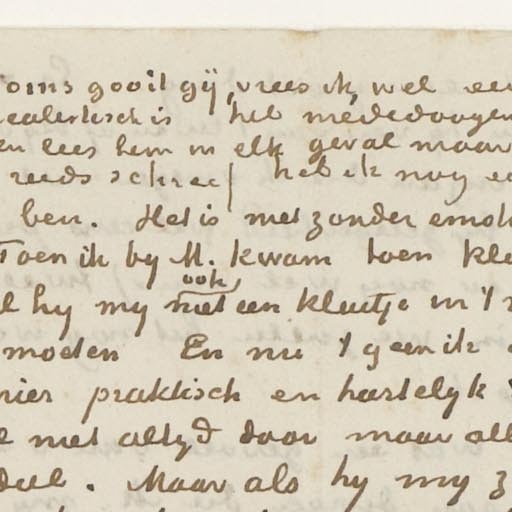 oms gooit gij, vrees ik, wel een
ealistisch is het mededoogen
en lees hem in elk geval maar
reeds schreef heb ik nog e
ben. Het is met zonder emot
Toen ik by M. kwam toen kle
l hy my ook
met een kleutje in 't
moeten En nu 't geen ik
nier praktisch en hartelyk
l met altyd door maar all
deel. Maar als hy my z